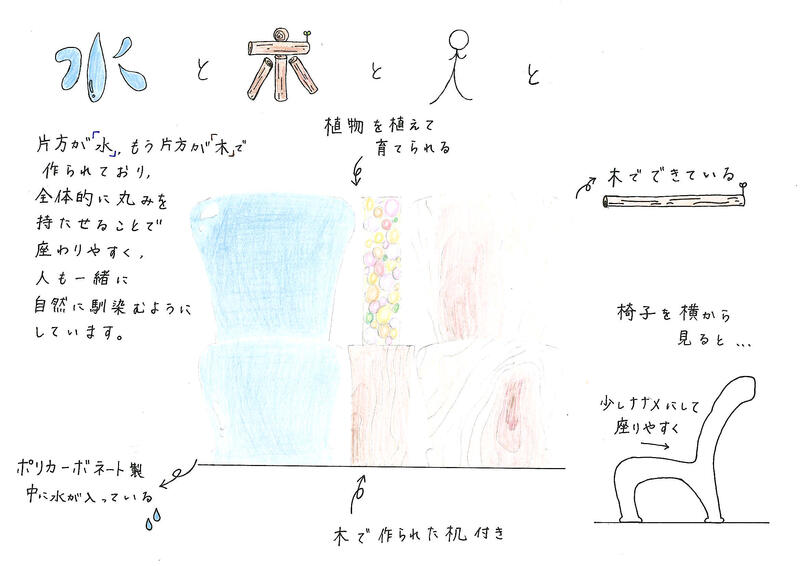 水 と 木 と 人 と
片方が「水」、もう片方が「木」で
作られており、
全体的に丸みを
持たせることで
座わりやすく、
人も一緒に
自然に馴染むように
しています。
植物を植えて
育てられる
木でできている
椅子を横から
見ると...
少しナナメにして
座りやすく
ポリカーボネート製
中に水が入っている
木で作られた机付き